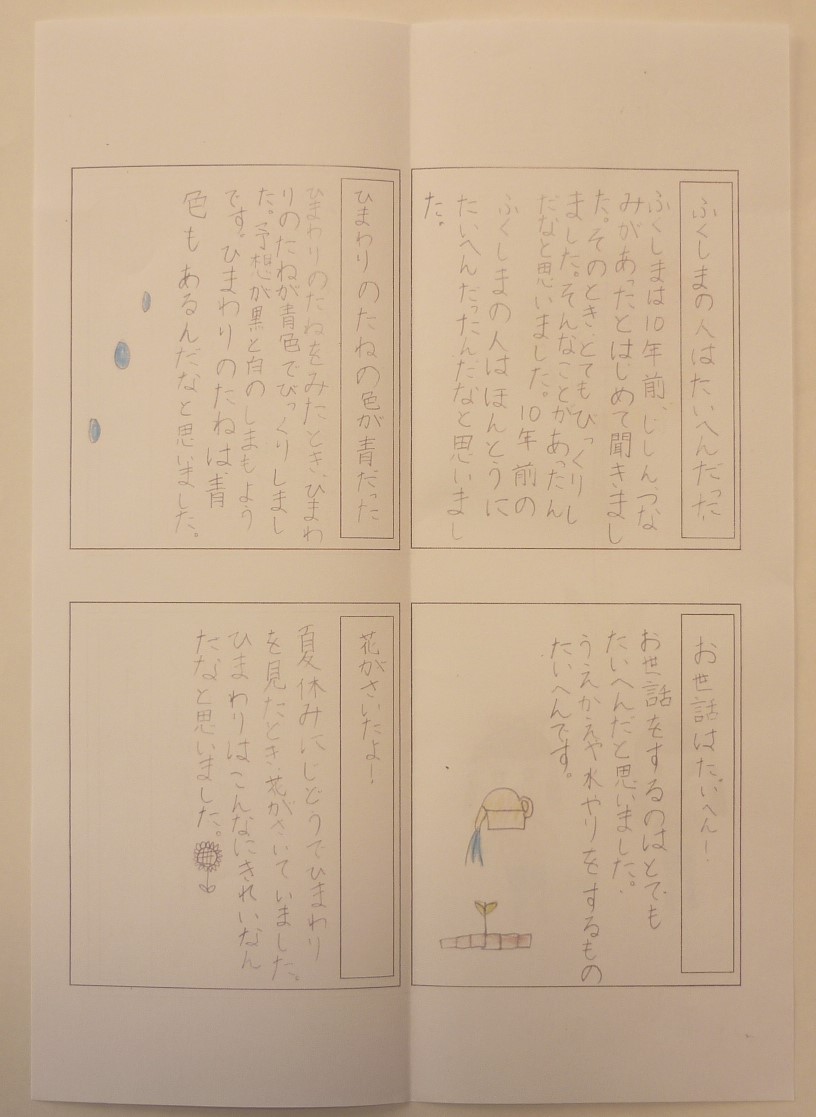 ふくしまの人はたいへんだった
ふくしまは10年前、じしん、つな
みがあったとはじめて聞きまし
た。そのとき、とてもびっくりし
ました。そんなことがあったん
だなと思いました。10年前の
ふくしまの人はほんとうに
たいへんだったんだなと思いまし
た。
ひまわりのたねの色が青だった
ひまわりのたねをみたとき、ひまわ
りのたねが青色でびっくりしまし
た。予想が黒と白のしまもよう
です。ひまわりのたねは、青
色もあるんだなと思いました。
お世話はたいへん!
お世話をするのはとても
たいへんだと思いました。
うえかえや水やりをするもの
たいへんです。
花がさいたよ!
夏休みにじどうでひまわり
を見たとき、花がさいていました。
ひまわりはこんなにきれいなん
だなと思いました。